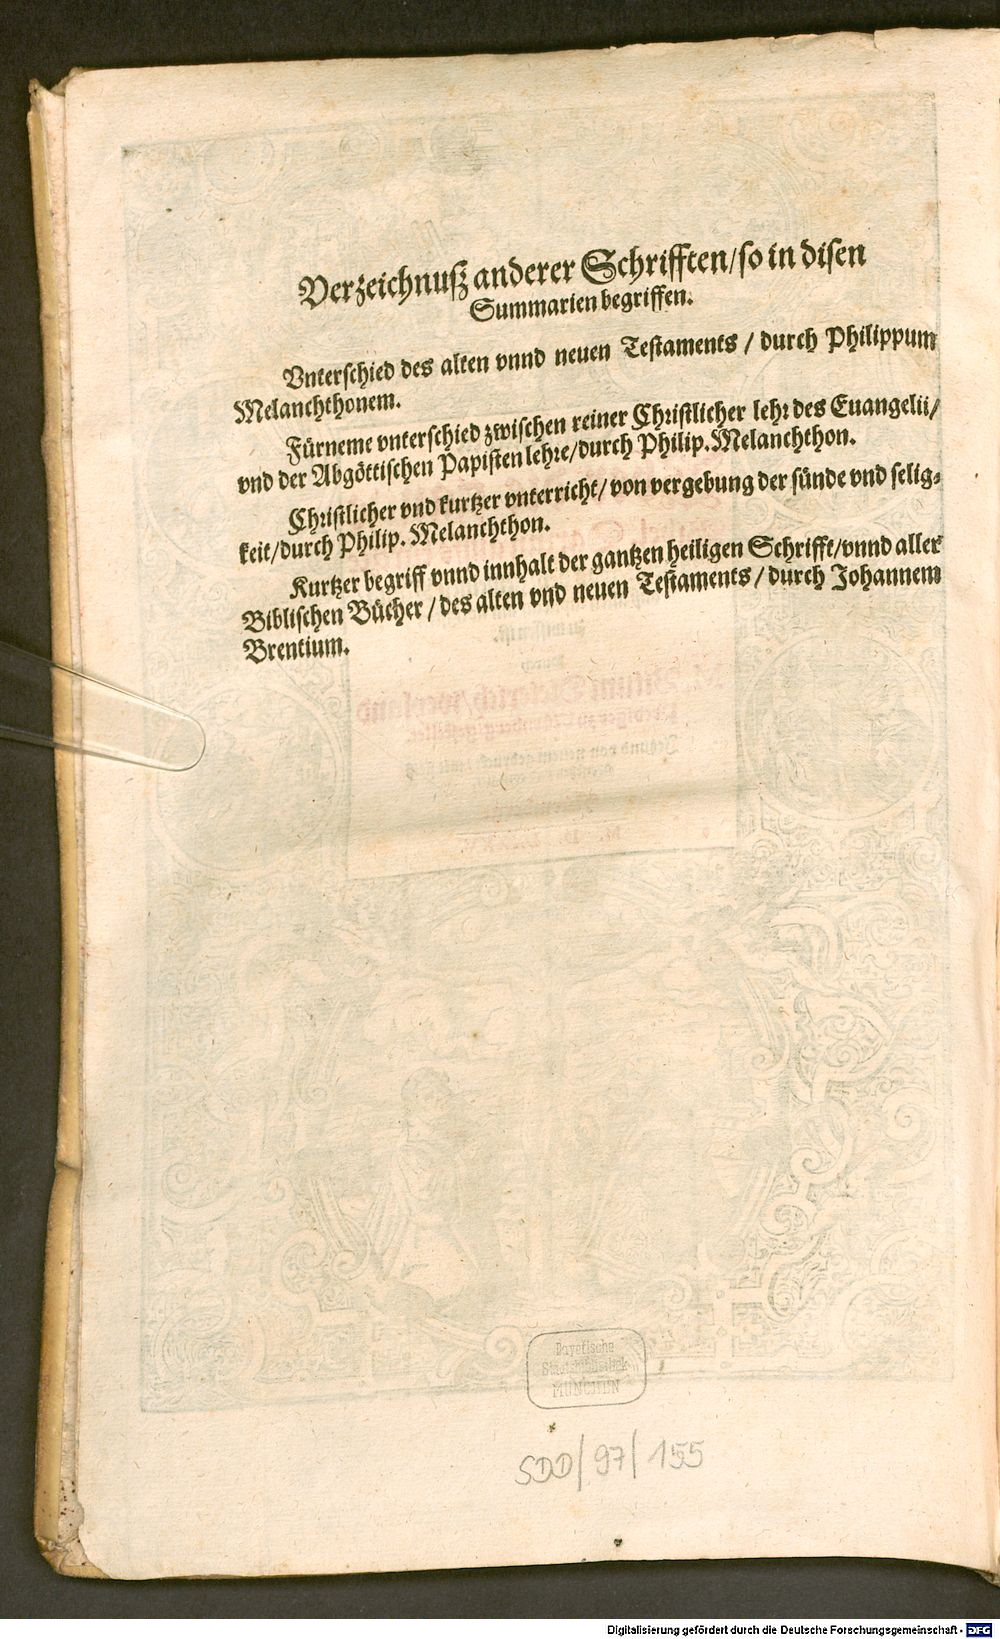 Verzeichnuß anderer Schrifften/so in disen
Summarien begriffen.
Vnterschied des alten vnnd neuen Testaments / durch Philippum
Melanchthonem.
Fürneme vnterschied zwischen reiner Christlicher lehr des Euangelii/
vnd der Abgöttischen Papisten lehre/durch Philip. Melanchthon.
Christlicher vnd kurtzer vnterricht/ von vergebung der sünde vnd selig-
keit/durch Philip. Melanchthon.
Kurtzer begriff vnnd innhalt der gantzen heiligen Schrifft/vnnd aller
Biblischen Bücher / des alten vnd neuen Testaments / durch Johannem
Brentium.
Bayerische
Staatsbibliothek
MÜNCHEN
SDD/97/155
Digitalisierung gefördert durch die Deutsche Forschungsgemeinschaft - DFG